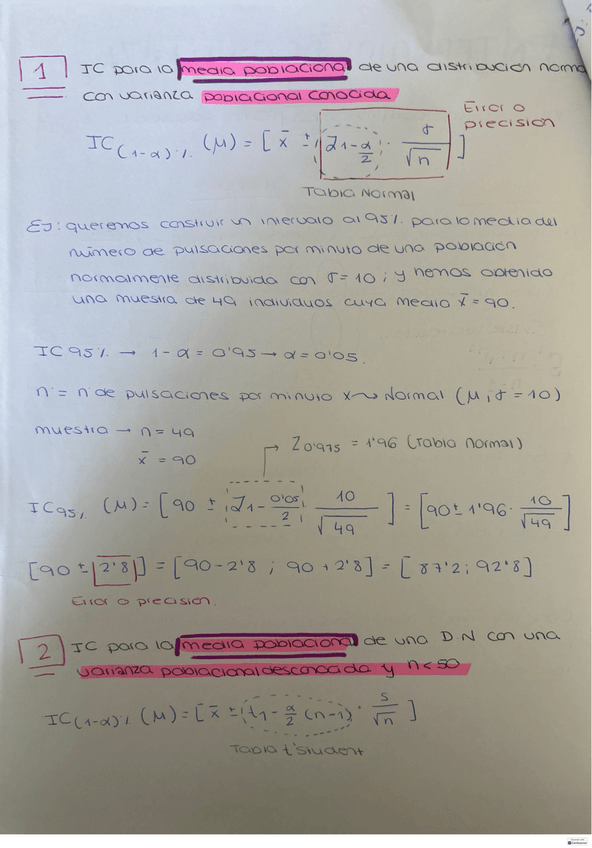 1 IC para la media poblacional de una distribución norma
con varianza poblacional conocida
Error o
precision
IC(1-α)% (μ) = [ x̄ ± Z1-α/2 · σ/√n ]
Tabla Normal
Ej: queremos construir un intervalo al 95% para la media del
número de pulsaciones por minuto de una población
normalmente distribuida con σ = 10; y hemos obtenido
una muestra de 49 individuos cuya media x̄ = 90.
IC 95% → 1-α = 0'95 → α = 0'05.
n = nº de pulsaciones por minuto x ~ Normal (μ, σ = 10)
muestra → n = 49
x̄ = 90
Z0'975 = 1'96 (Tabla normal)
IC95% (μ) = [ 90 ± Z1-0'05/2 10/√49 ] = [ 90 ± 1'96 · 10/√49 ]
[ 90 ± 2'8 ] = [ 90 - 2'8 ; 90 + 2'8 ] = [ 87'2 ; 92'8 ]
Error o precision.
2 IC para la media poblacional de una D.N con una
varianza poblacional desconocida y n < 50
IC(1-α)% (μ) = [ x̄ ± t1-α/2 (n-1) · s/√n ]
Tabla t'student